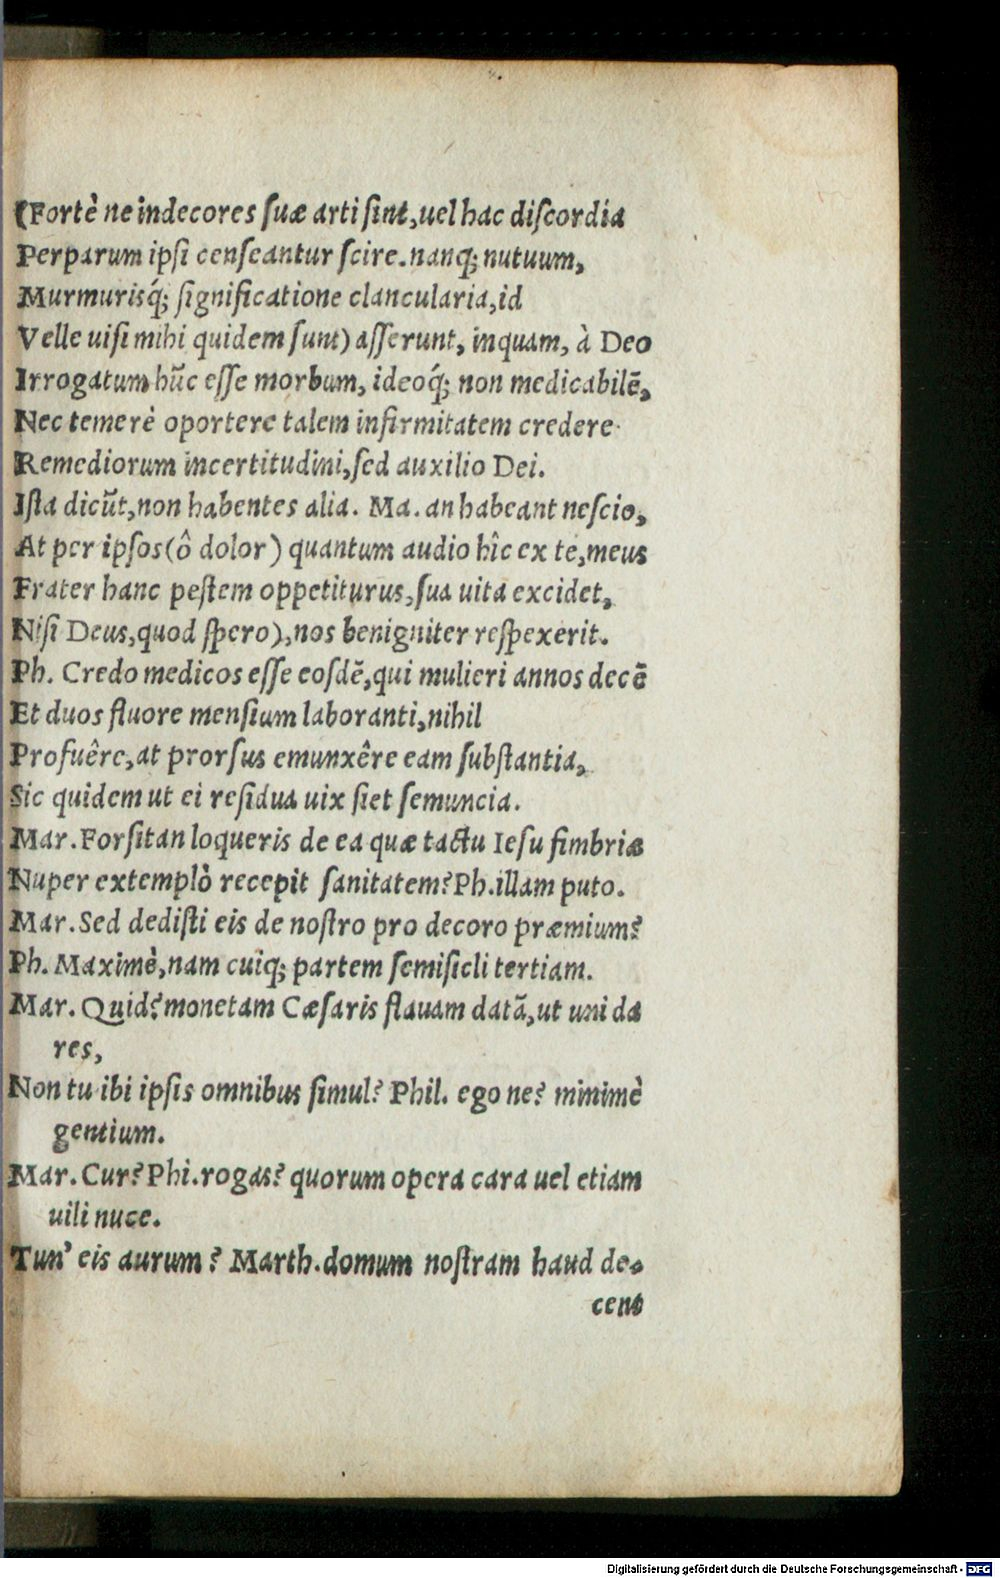 (Fortè ne indecores suæ arti sint, uel hac discordia
Perparum ipsi censeantur scire. nanq; nutuum,
Murmurisq́; significatione clancularia, id
Velle uisi mihi quidem sunt) asserunt, inquam, à Deo
Irrogatum hũc esse morbum, ideoq́; non medicabilẽ,
Nec temerè oportere talem infirmitatem credere
Remediorum incertitudini, sed auxilio Dei.
Ista dicũt, non habentes alia. Ma. an habeant nescio,
At per ipsos (ô dolor) quantum audio hîc ex te, meus
Frater hanc pestem oppetiturus, sua uita excidet,
Nisi Deus, quod spero), nos benigniter respexerit.
Ph. Credo medicos esse eosdẽ, qui mulieri annos decẽ
Et duos fluore mensium laboranti, nihil
Profuêre, at prorsus emunxêre eam substantia,
Sic quidem ut ei residua uix siet semuncia.
Mar. Forsitan loqueris de ea quæ tactu Iesu fimbriæ
Nuper extemplò recepit sanitatem? Ph. illam puto.
Mar. Sed dedisti eis de nostro pro decoro præmium?
Ph. Maximè, nam cuiq; partem semisicli tertiam.
Mar. Quid? monetam Cæsaris flauam datã, ut uni da
res,
Non tu ibi ipsis omnibus simul? Phil. ego ne? minimè
gentium.
Mar. Cur? Phi. rogas? quorum opera cara uel etiam
uili nuce.
Tun' eis aurum? Marth. domum nostram haud de-
cent
Digitalisierung gefördert durch die Deutsche Forschungsgemeinschaft - DFG